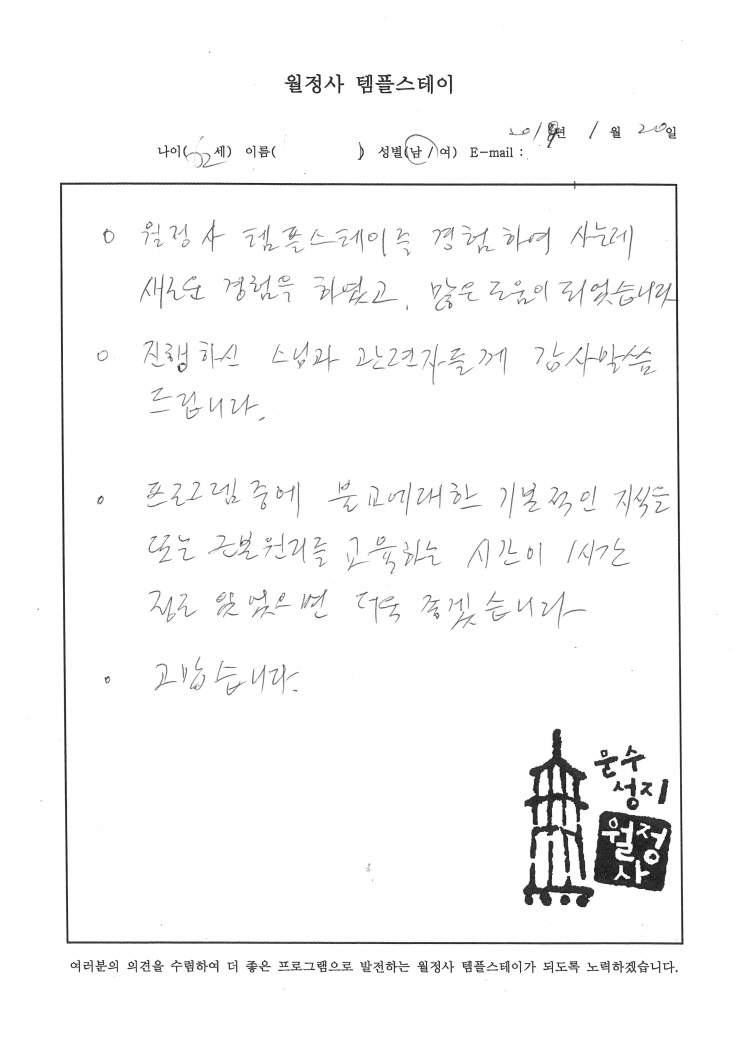 월정사 템플스테이
년 1월 20일
나이( 세) 이름( ) 성별(남 / 여) E-mail :
o 월정사 템플스테이를 경험하여 사는데
새로운 경험을 하였고, 많은 도움이 되었습니다
o 진행하신 스님과 관련자들께 감사말씀
드립니다.
o 프로그램중에 불교에대한 기본적인 지식들
또는 근본원리를 교육하는 시간이 1시간
정도 있었으면 더욱 좋겠습니다
o 고맙습니다.
문수
성지
월정
사
여러분의 의견을 수렴하여 더 좋은 프로그램으로 발전하는 월정사 템플스테이가 되도록 노력하겠습니다.